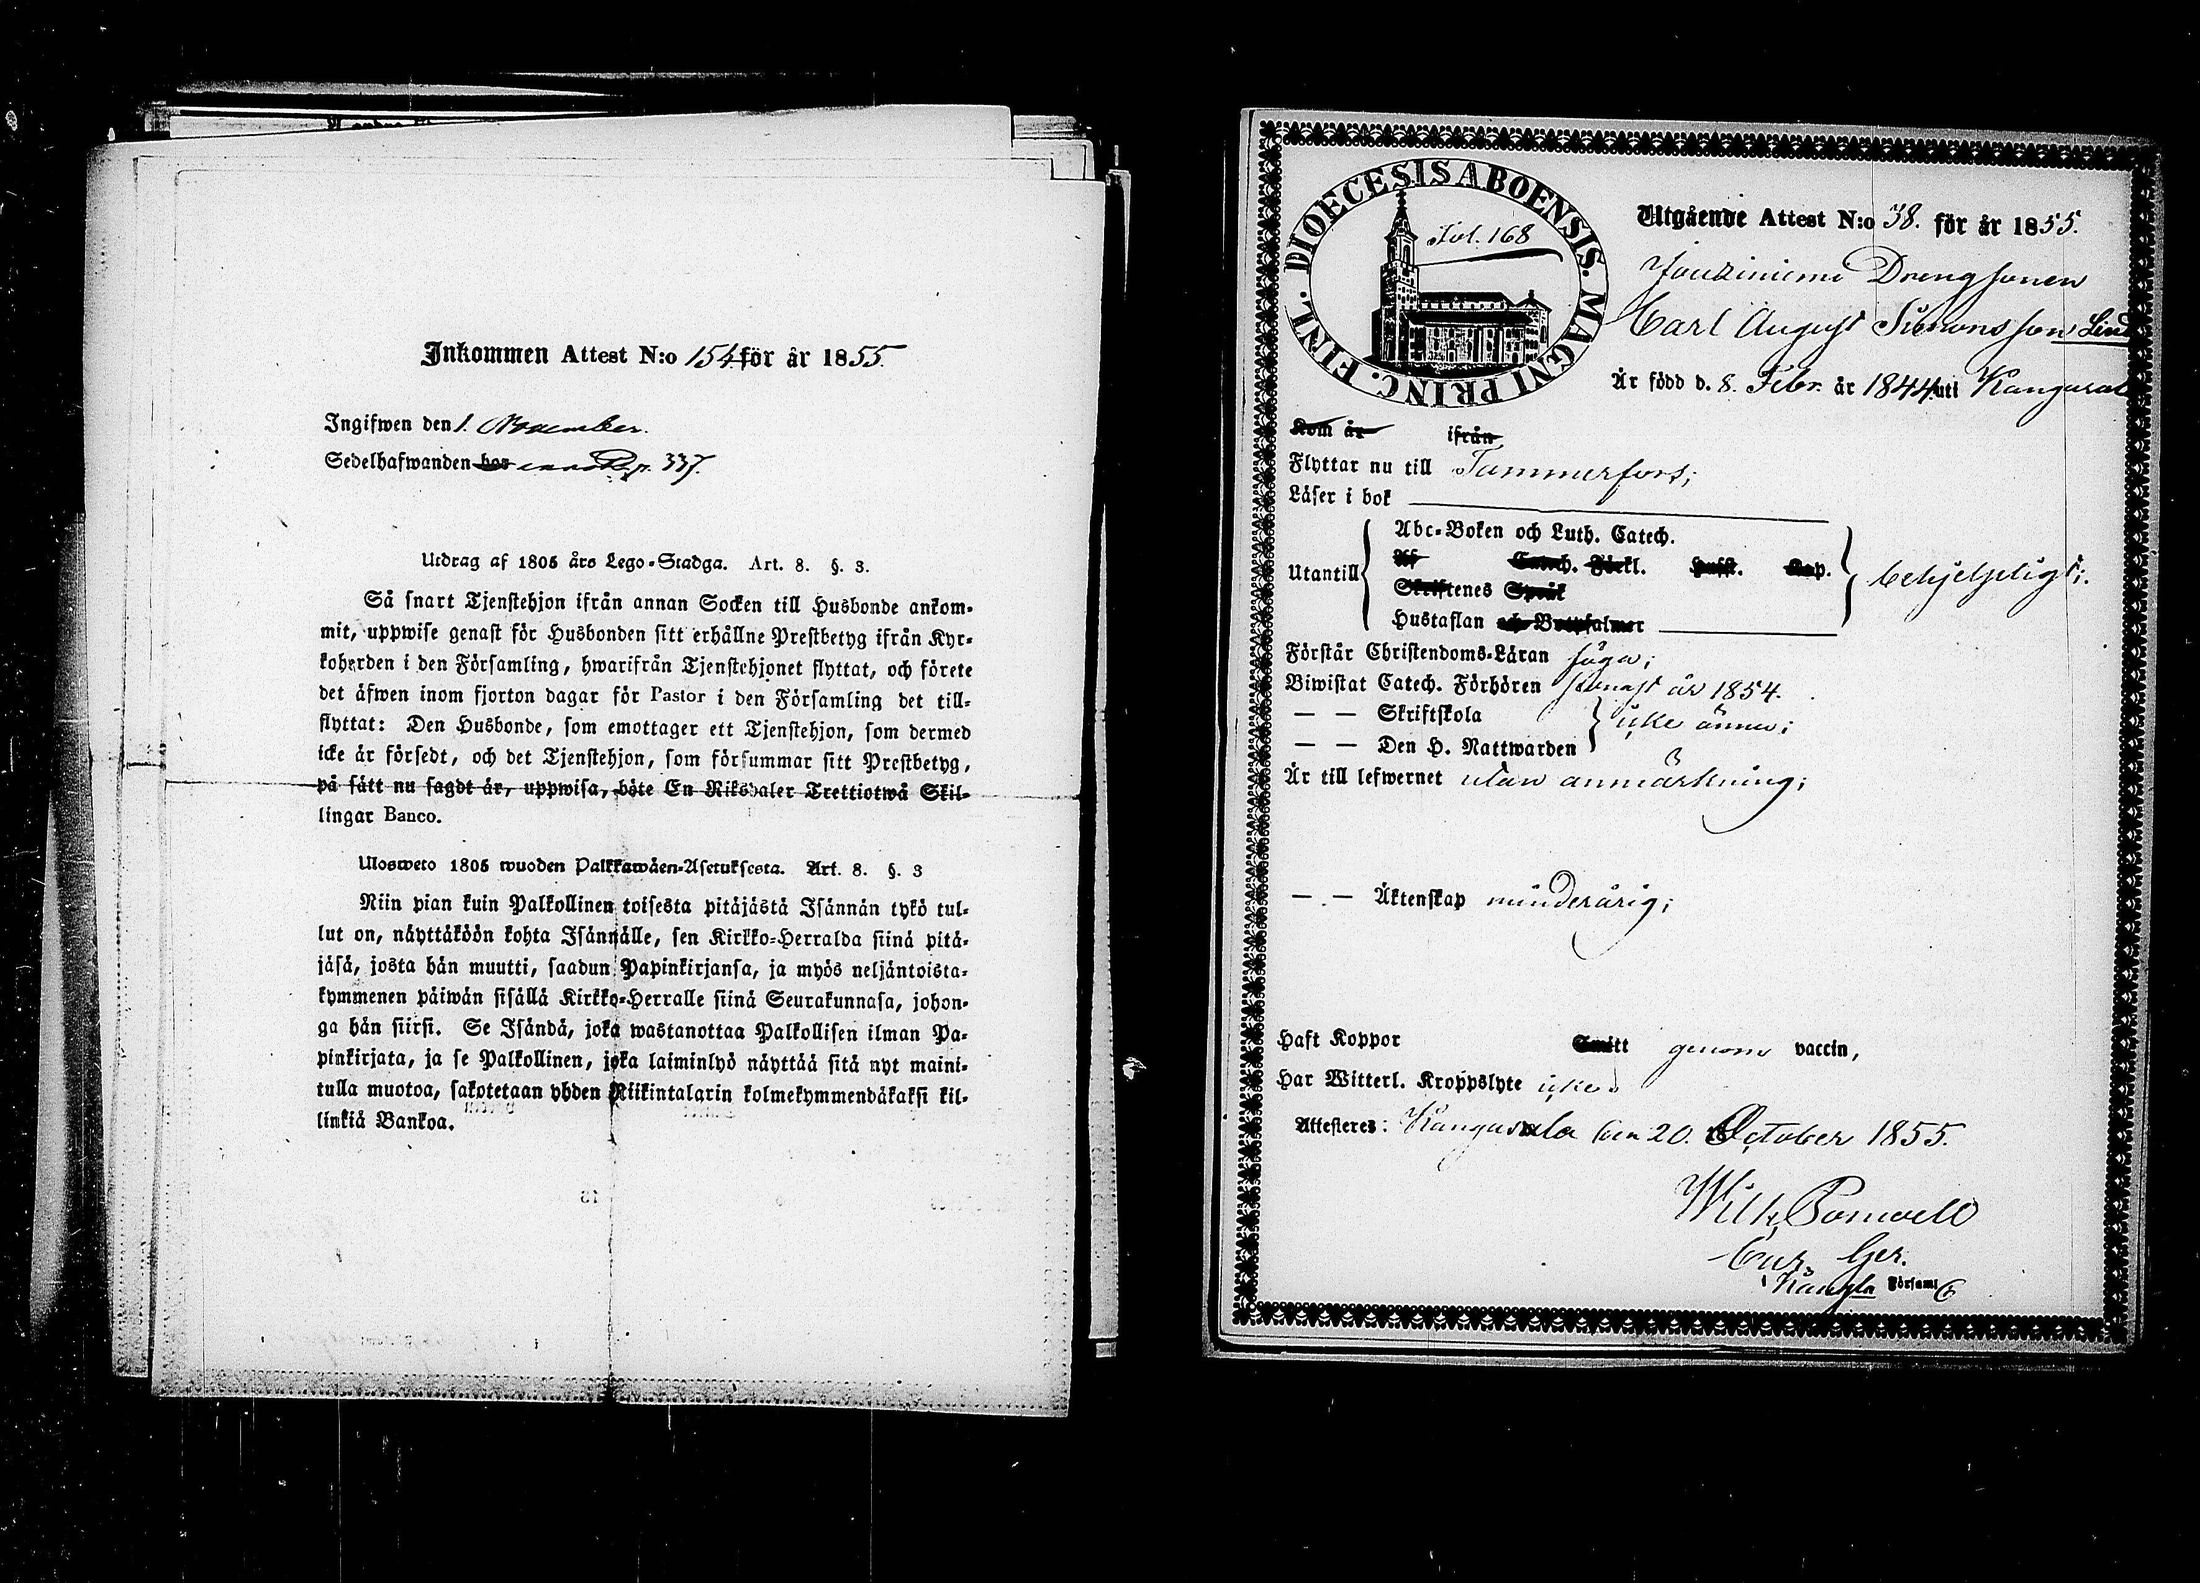 Inkommen Attest N:o 154 för år 1855.
Ingifwen den 1. November.
Sedelhafwanden hos 337.
Utdrag af 1805 års Lego-Stadga. Art. 8. §. 3.
Så snart Tjenstehjon ifrån annan Socken till Husbonde ankom-
mit, uppwise genast för Husbonden sitt erhållne Prestbetyg ifrån Kyr-
koherden i den Församling, hwarifrån Tjenstehjonet flyttat, och förete
det äfwen inom fjorton dagar för Pastor i den Församling det till-
flyttat: Den Husbonde, som emottager ett Tjenstehjon, som dermed
icke är försedt, och det Tjenstehjon, som försummar sitt Prestbetyg,
på sätt nu sagdt är, uppwisa, böte En Riksdaler Trettiotwå Skil-
lingar Banco.
Ulosweto 1805 wuoden Palkkawäen-Asetuksesta. Art. 8. §. 3
Niin pian kuin Palkollinen toisesta pitäjästä Isännän tykö tul-
lut on, näyttäköön kohta Isännälle, sen Kirkko-Herralda siinä pitä-
jäsä, josta hän muutti, saadun Papinkirjansa, ja myös neljäntoista-
kymmenen päiwän sisällä Kirkko-Herralle siinä Seurakunnasa, johon-
ga hän siirsi. Se Isändä, joka wastanottaa Palkollisen ilman Pa-
pinkirjata, ja se Palkollinen, joka laiminlyö näyttää sitä nyt maini-
tulla muotoa, sakotetaan yhden Riikintalarin kolmekymmendäkaksi kil-
linkiä Bankoa.
DIOECESIS ABOENSIS. MAGNI PRINC. FINL.
Fol. 168
Utgående Attest N:o 38. för år 1855.
Joukiniemi Drengsonen
Carl August Simonsson Lind
Är född d. 8. Febr. år 1844 uti Kangasala
Kom år ifrån
Flyttar nu till Tammerfors;
Läser i bok
Abc-Boken och Luth. Catech.
Utantill Af Catech. Förkl. Hufst. Kap. behjelpligt;
Skriftenes Språk
Hustaflan och Botpsalmer
Förstår Christendoms-Läran föga;
Biwistat Catech. Förhören senast år 1854.
— — Skriftskola icke ännu;
— — Den H. Nattwarden
Är till lefwernet utan anmärkning;
— . — Äktenskap minderårig;
Haft Koppor Smitt genom vaccin,
Har Witterl. Kroppslyte icke.
Attesteres: Kangasala den 20. October 1855.
Wilh. Pomoell
Cur. Ger.
i Kangla Församl